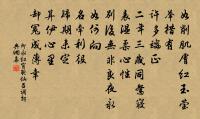 如削肌膚紅玉瑩
舉措有
許多端正
二年三歲同鴛寢
表溫柔心性
別後無非良夜永
如何向
名牽利役
歸期未定
算伊心裏
却冤成薄幸
柳永紅窗聽仙呂調詞